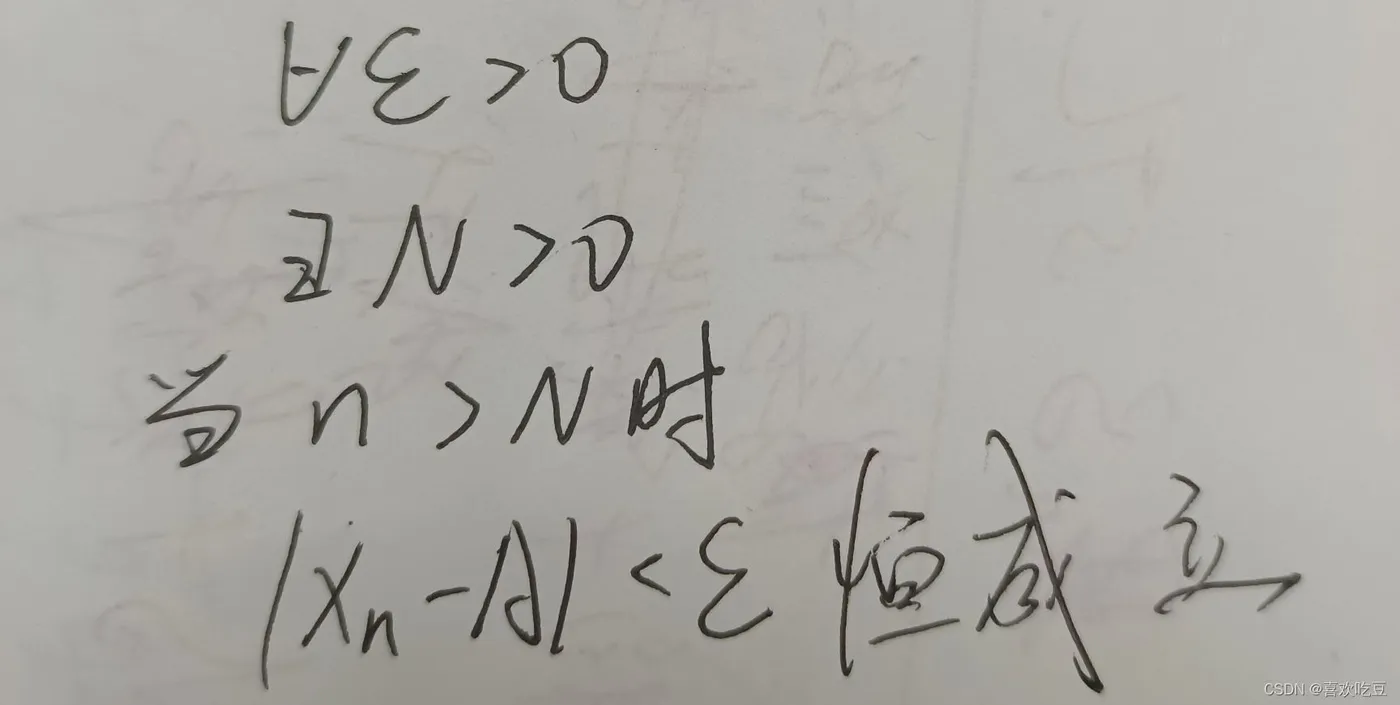 ∀ε>0
∃N>0
当n>N时
|Xn-A|<ε恒成立
CSDN @喜欢吃豆